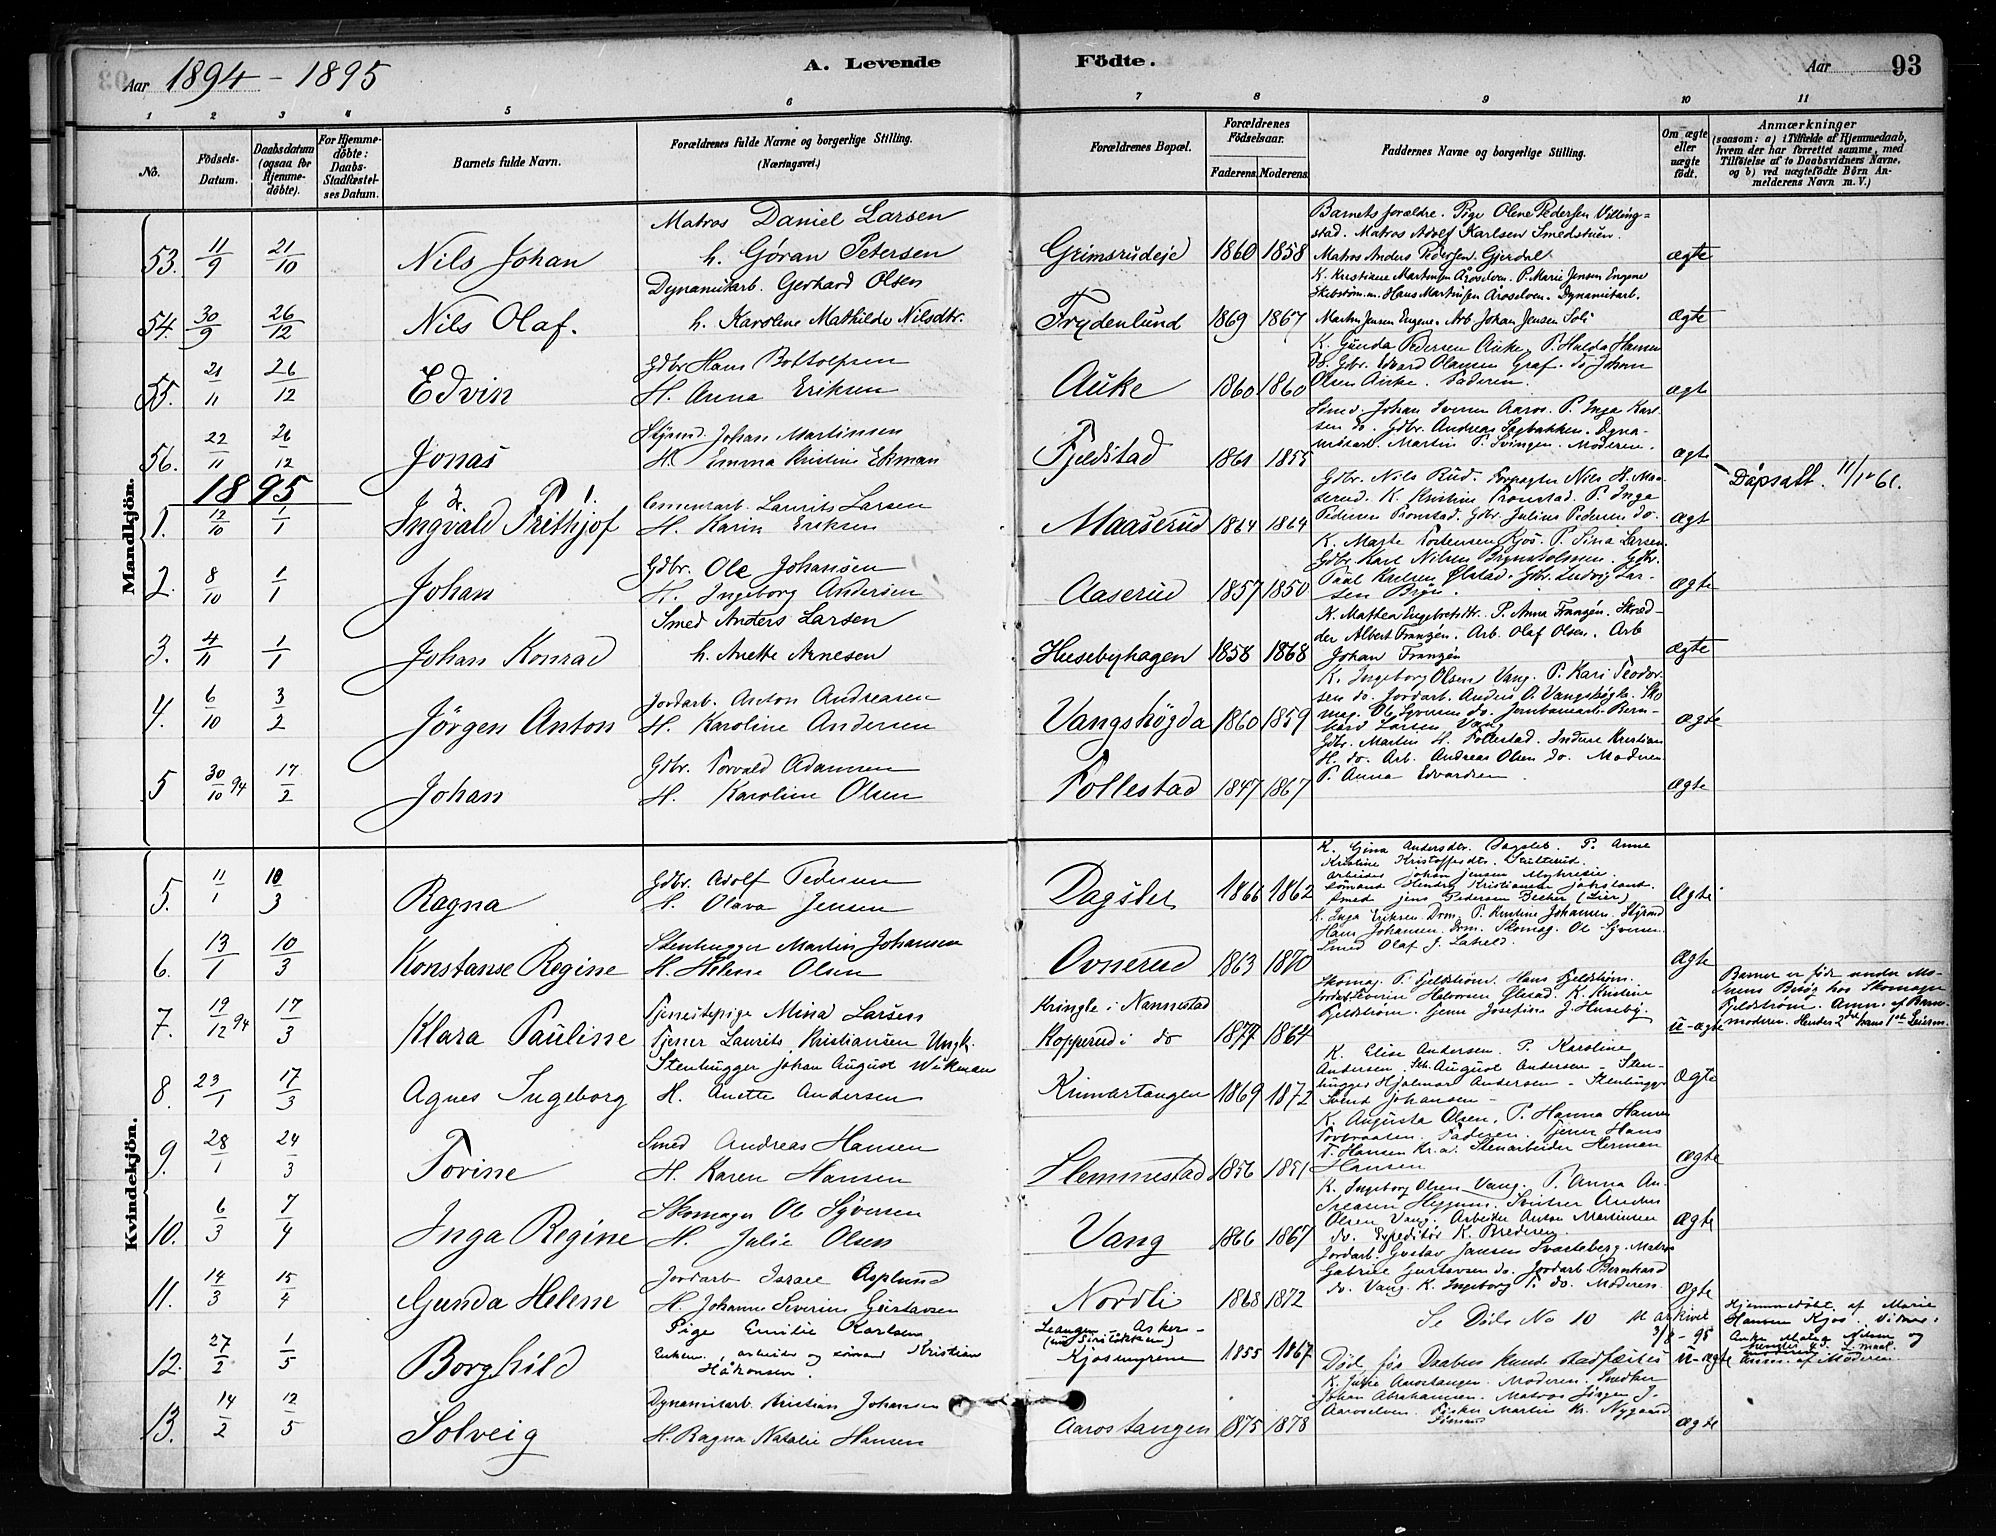 Aar 1894 - 1895
A. Levende Födte.
Aar
93
1 2 3 4 5 6 7 8 9 10 11
No.
Födsels-Datum.
Daabsdatum (ogsaa for Hjemme-döbte).
For Hjemme-döbte: Daabs-Stadfæstel-ses Datum.
Barnets fulde Navn.
Forældrenes fulde Navne og borgerlige Stilling.
(Næringsvei.)
Forældrenes Bopæl.
Forældrenes Födselsaar.
Faderens. Moderens.
Faddernes Navne og borgerlige Stilling.
Om ægte eller uægte födt.
Anmærkninger
(saasom: a) i Tilfælde af Hjemmedaab,
hvem der har forrettet samme, med
Tilföielse af to Daabsvidners Navne,
og b) ved uægtefödte Börn An-
melderens Navn m. V.)
Mandkjön.
53. 11/9 21/10 Nils Johan Matros Daniel Larsen
h. Gøran Petersen Grimsrudeje 1860 1858 ægte
Barnets forældre. Pige Olene Pedersen Villing=
stad. Matros Adolf Karlsen Smedstuen.
Matros Anders Pedersen Gjerdal
54. 30/9 26/12 Nils Olaf. Dynamitarb. Gerhard Olsen
h. Karoline Mathilde Nilsdtr. Frydenlund 1869 1867 ægte
K. Kristiane Martinsen Aroselven. P. Marie Jensen Engene
m. Hans Martinsen Aroselven. Dynamitarb.
Martin Jensen Engene. Arb. Johan Jensen Soli
55. 21/11 26/12 Edvin Gdbr Hans Bottolfsen
H. Arena Eriksen Auke 1860 1860 ægt
K. Gunda Pedersen Auke. P. Hulda Hansen
do. Gbr. Edvard Olausen Graf. do Johan
Olsen Auke. Faderen.
56. 22/11 26/12 Jonas Styrmd. Johan Martinsen
H. Emma Kristine Ekman Fjeldstad 1861 1855 ægt
Smed. Johan Iversen Aaros. P. Inga Karl
sen do. Gdbr. Andreas Sagbakken. Dyna-
mitarb. Martin P. Svingen. Moderen.
1895
1. 12/10 1/1 Ingvald Frithjof Cementarb. Laurits Larsen
H. Karin Eriksen Maaserud 1864 1864 ægt
Gdbr. Nils Rud. Forpagter Nils H. Maa-
serud. K. Kristine Tronstad. P. Inga
Pedersen Tronstad. Gdbr. Julius Pedersen do.
Dåpsatt. 11/1-61.
2. 8/10 1/1 Johan Gdbr. Ole Johansen
H. Ingeborg Andersen Aaserud 1857 1850 ægte
K. Marte Torstensen Kjos. P. Sina Larsen
Gdbr. Karl Nilsen Gdbr.
Paul Karlsen Ølstad. Gbr. Ludvig Lar-
sen
3. 4/11 1/1 Johan Konrad Smed Anders Larsen
h. Anette Arnesen Husebyhagen 1858 1868 ægte
K. Mathea Engebretsdtr. P. Anna Franzén. Skræd-
der Albert Franzén. Arb. Olaf Olsen. Arb
Johan Franzén
4. 6/10 3/2 Jörgen Anton Jordarb. Anton Andreasen
H. Karoline Andersen Vangshögda 1860 1859 ægte
K. Ingeborg Olsen Vang. P. Kari Teodor-
sen do. Jordarb. Anders O. Vangshögda. Sko
mag. Ole Syversen do. Jernbanearb. Bern-
hard Larsen Vang
5 30/10 94 17/2 Johan Gdbr. Torvald Adamsen
H. Karoline Olsen Follestad 1847 1867 ægte
Gdbr. Martin H. Follestad. Inderst Kristian
H. do. Arb. Andreas Olsen do. Moderen
P. Anna Edvardsen
Kvindekjön.
5. 11/1 10/3 Ragna Gdbr. Adolf Pedersen
H. Olava Jensen Dagslet 1866 1862 Ægte
K. Gina Andersdtr. Dagslet. P. Anne
Kristine Kristoffersdtr.
Arbeider Johan Jensen
Sömand Hendry Kristiansen
Smed Jens Pedersen Becker (Lier)
6. 13/1 10/3 Konstanse Regine Stenhugger Martin Johansen
H. Helene Olsen Ovnerud 1863 1870 Ægte
K. Inga Eriksen Drm. P. Kristine Johansen. Styrmd
Hans Johansen. Drm. Skomag. Ole Syversen
Smed Olaf J. Lahell.
7. 19/12 94 17/3 Klara Pauline Tjenestepige Mina Larsen
Tjener Laurits Kristiansen Ungk. Kringle i Nannestad
Kopperud i do 1877 1864 u-ægte
Skomag. P. Fjeldstrøm. Hans Fjeldstrøm.
Severin Halvorsen K. Kristine
Fjeldstrøm. Josefine J. Huseby.
Barnet er født under Mo-
derens Besøg hos Skomager
Fjeldstrøm. Anm. af Barne-
moderen. Hendes 2det hans 1ste Leierm.
8. 23/1 17/3 Agnes Ingeborg Stenhugger Johan August Wikman
H. Anette Andersen Kinnartangen 1869 1872 Ægte
K. Elise Andersen. P. Karoline
Andersen. Sth. August Andersen - Sten-
hugger Hjalmar Andersen - Stenhugger
Svend Johansen -
9. 28/1 24/3 Torine Smed Andreas Hansen
H. Karen Hansen Slemmestad 1856 1851 Ægte
K. Augusta Olsen. P. Hanna Hansen
Torvbraaten. Faderen. Tjener Hans
T. Hansen Kr.a. Stenarbeider Herman
Hansen
10. 6/3 7/4 Inga Regine Skomager Ole Syversen
H. Julie Olsen Vang 1866 1867 Ægte
K. Ingeborg Olsen Vang. P. Anna An-
dreasen Heggum. Snedker Anders
Olsen Vang. Arbeider Anton Martinsen
do. Expeditör K. Bredesen
11. 14/3 15/4 Gunda Helene Jordarb Israel Asplund
H. Johanne Severine Gustavsen Nordli 1868 1872 Ægte
Jordarb. Gustav Jansen Svarteberg. Matros
Gabriel Gustavsen do. Jordarb Bernhard
do. Vang. K. Ingeborg T. do. Moderen
12. 27/2 1/5 Borghild Pige Emilie Karlsen
Enkem. arbeider og sömand Kristian
Håkonsen. Leangen Asker -
Kjosmyrene 1855 1867 u-ægte
Se Döde No 10 M arkivet
3/8 - 95
Död för Daaben kund stadfæstes
Hjemmedöbt af Marie
Hansen Kjos. Vidner:
Anke Nilsen og
Anm. af Moderen.
13. 14/2 12/5 Solveig Dynamitarb. Kristian Johansen
H. Ragna Natalie Hansen Aarostangen 1875 1878 Ægte
K. Julie Aarostangen. Moderen. Snedker
Johan Abrahamsen. Matros Jörgen J.
Aaroselven. Fisker Martin Kr. Nygaard
Sömand